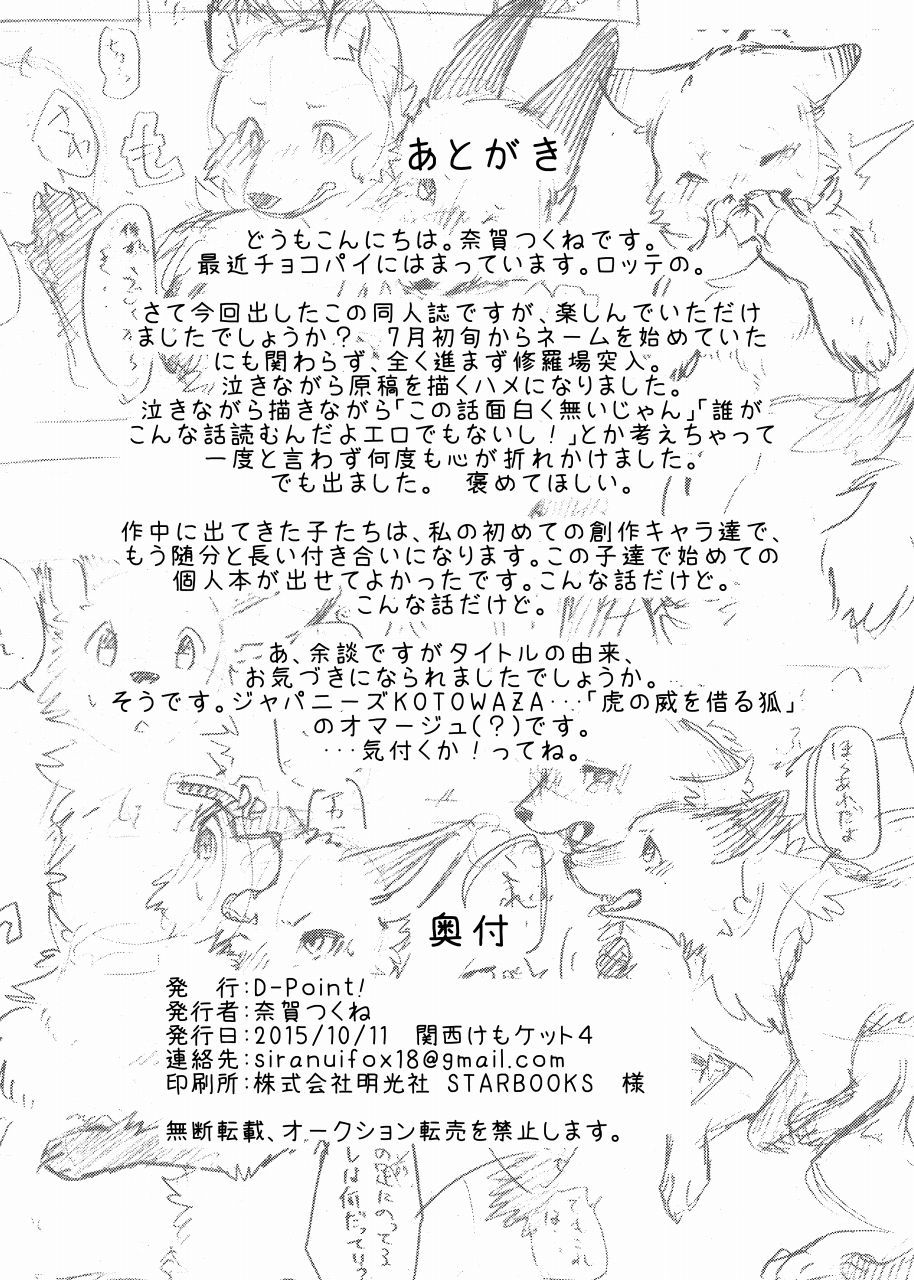 あとがき
どうもこんにちは。奈賀つくねです。
最近チョコパイにはまっています。ロッテの。
さて今回出したこの同人誌ですが、楽しんでいただけ
ましたでしょうか？　7月初旬からネームを始めていた
にも関わらず、全く進まず修羅場突入。
泣きながら原稿を描くハメになりました。
泣きながら描きながら「この話面白く無いじゃん」「誰が
こんな話読むんだよエロでもないし！」とか考えちゃって
一度と言わず何度も心が折れかけました。
でも出ました。　褒めてほしい。
作中に出てきた子たちは、私の初めての創作キャラ達で、
もう随分と長い付き合いになります。この子達で始めての
個人本が出せてよかったです。こんな話だけど。
こんな話だけど。
あ、余談ですがタイトルの由来、
お気づきになられましたでしょうか。
そうです。ジャパニーズKOTOWAZA…「虎の威を借る狐」
のオマージュ(？)です。
…気付くか！ってね。
ほらあふだよ
奥付
発　行：D-Point!
発行者：奈賀つくね
発行日：2015/10/11　関西けもケット4
連絡先：siranuifox18@gmail.com
印刷所：株式会社明光社 STARBOOKS　様
無断転載、オークション転売を禁止します。